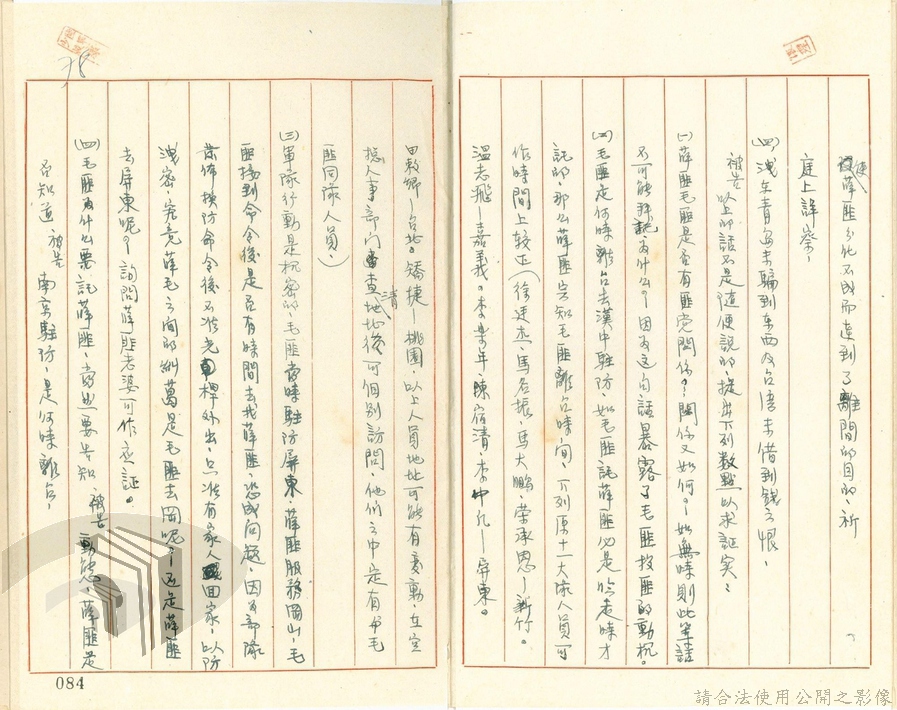 薛匪分化不成而達到了離間的目的，祈
庭上詳察，
(四)洩在青島未騙到東西及台灣未借到錢之恨，
被告以上的話不是隨便說的，提出下列數點以求証实：
(一)薛匪毛匪是否有匪党関係？関係又如何？如無時則此筆話
不可能託為什么？因為这句話暴露了毛匪投匪的動机。
(二)毛匪是何時離台去漢中駐防，如毛匪託薛匪必是臨走時才
託的，那么薛匪定知毛匪離台時间，下列原十一大隊人員可
作時間上较正(徐廷杰、馬名振、馬大鵬、荣承恩—新竹。
溫志飛—嘉義。李 年、陳宿清、李中凡—屏東。
田敦卿—台北。 捷—桃園，以上人員地址可能有変動，在空
總人事部门查清地址後可個别訪問，他們之中定有与毛
匪同隊人員，)
(三)軍隊行動是机密的，毛匪當時駐防屏東，薛匪服務岡山，毛
匪接到命令後是否有時間去找薛匪恐成问題，因為部隊
奉佈換防命令後不准光桿外出，只准有家人回家，以防
洩密，究竟薛毛之间的糾葛是毛匪去岡呢？还是薛匪
去屏東呢？詢問薛匪老婆可作应証。
(四)毛匪為什么要託薛匪，當然要告知被告動態，薛匪是
否知道被告南京駐防，是何時離台，
084
請合法使用公開之影像